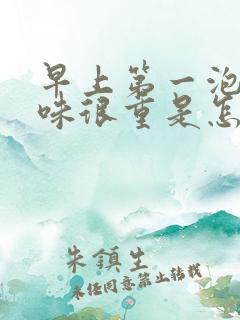 早上第一泡
味很重是怎
朱镇生
未经同意禁止转载